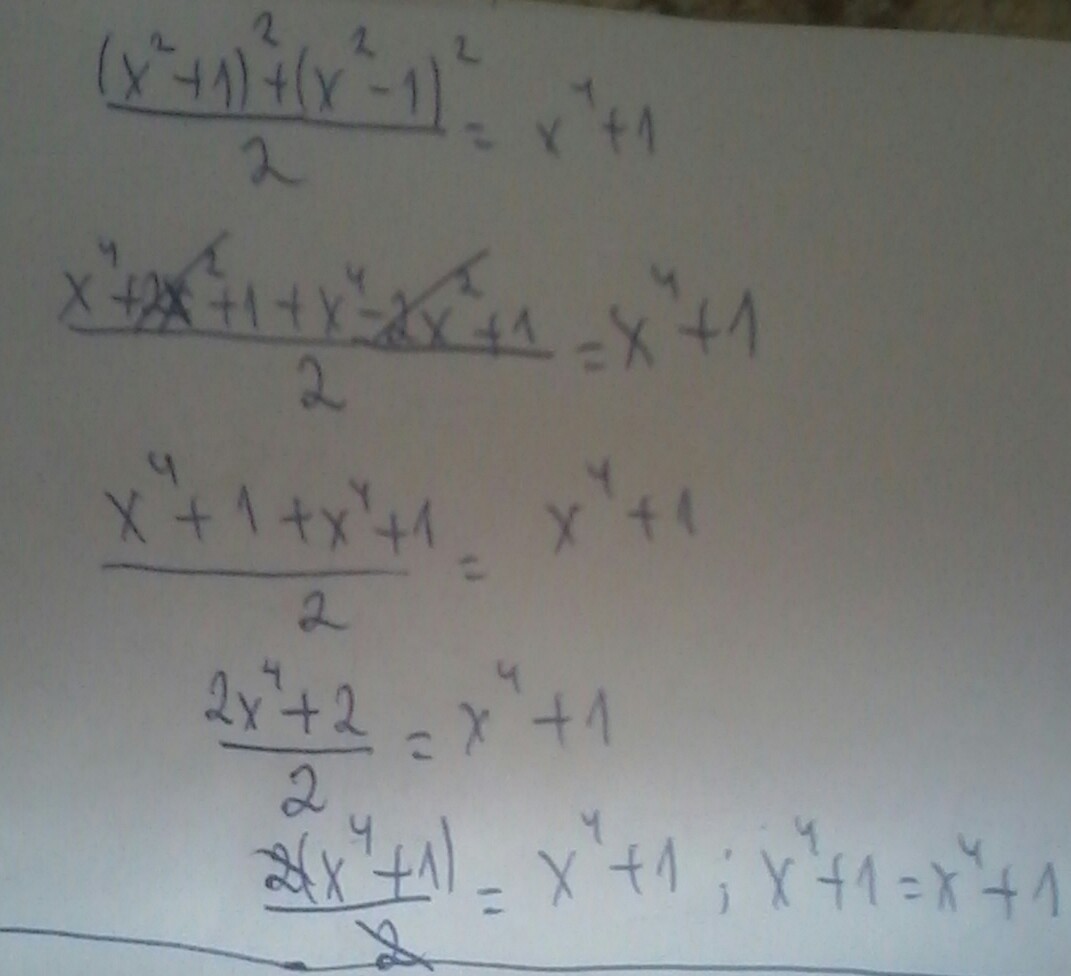 ((x²+1)²+(x²-1)²)/2 = x⁴+1
(x⁴+2x²+1+x⁴-2x²+1)/2 = x⁴+1
(x⁴+1+x⁴+1)/2 = x⁴+1
(2x⁴+2)/2 = x⁴+1
2(x⁴+1)/2 = x⁴+1 ; x⁴+1=x⁴+1